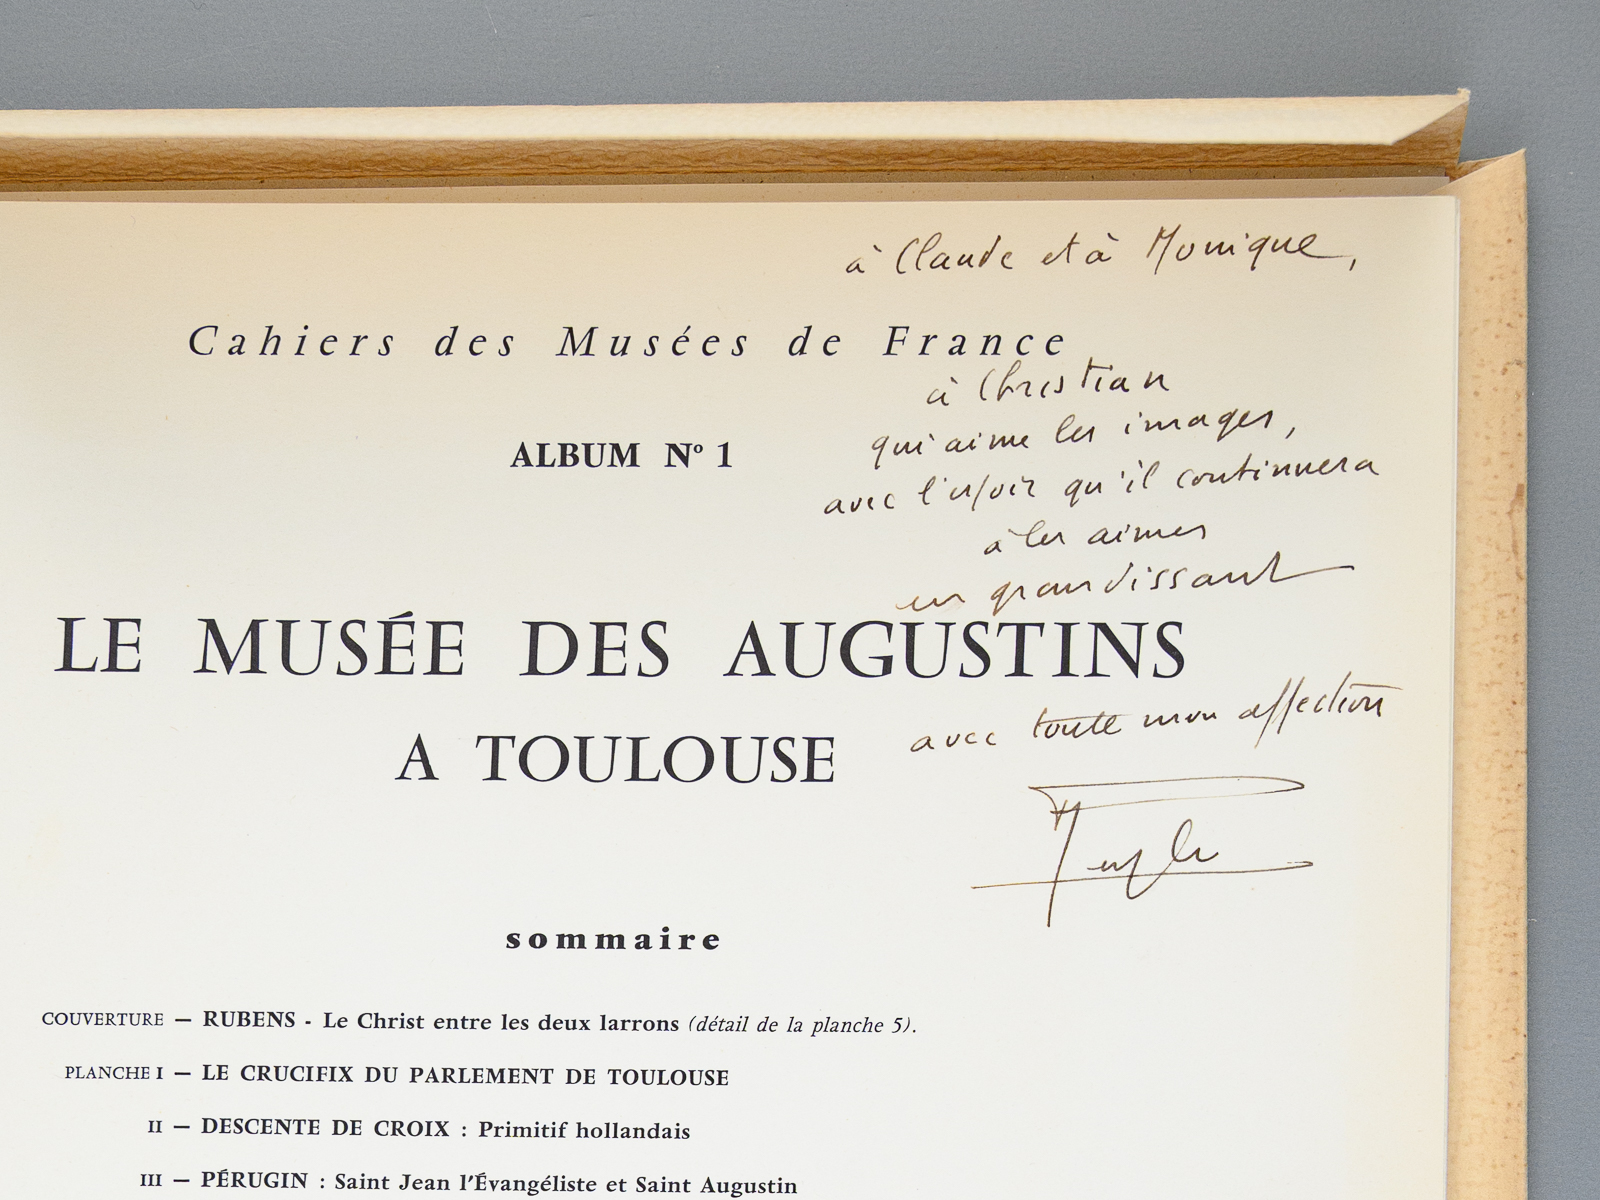 à Claude et à Monique,
Cahiers des Musées de France
à Christian
qui aime les images,
ALBUM Nº 1
avec l'espoir qu'il continuera
à les aimer
en grandissant
LE MUSÉE DES AUGUSTINS
avec toute mon affection
A TOULOUSE
sommaire
COUVERTURE — RUBENS - Le Christ entre les deux larrons (détail de la planche 5).
PLANCHE I — LE CRUCIFIX DU PARLEMENT DE TOULOUSE
II — DESCENTE DE CROIX : Primitif hollandais
III — PÉRUGIN : Saint Jean l'Évangéliste et Saint Augustin